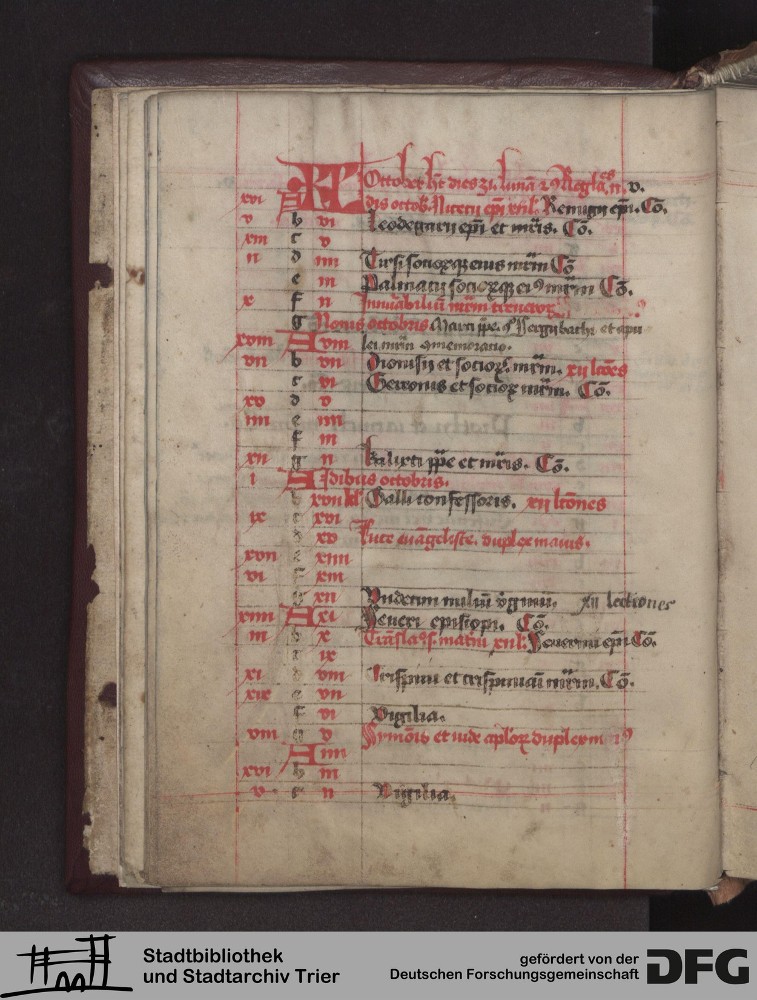 KL October ht dies 31 lunā
xvi A dis octob. Nicetij epi xii l. Remigij epi. Cō.
v b vi Leodegarij epi et mris. Cō.
xiii c v
ii d iiii Tirsi socioꝝqꝫ eius mrm Cō
e iii Palmatij socioꝝqꝫ eiꝰ mrm Cō.
x f ii Innūabiliū mrm treueroꝝ
g Nonis octobris Marci ppe. Sergij bachi et apu
xviii A viii lei mrm
vii b vii Dionisij et socioꝝ mrm. xij lcōes
c vi Gereonis et socioꝝ mrm. Cō.
xv d v
iiii e iiii
f iii
xii g ii Kalixti ppe et mris. Cō.
i A Idibus octobris.
b xvii kl Galli confessoris. xij lcōnes
ix c xvi
d xv Luce euāgeliste. duplex maius.
xvii e xiiii
vi f xiii
g xii Undecim miliū vgginū. xij lectiones
xiiii A xi Seueri episcopi. Cō.
iii b x Seuerini epi Cō.
c ix
xi d viii Crispini et crispiniani mrm. Cō.
xix e vii
f vi Vigilia.
viii g v Symōis et iude aploꝝ duplex
A iiii
xvi b iii
v c ii Vigilia.
Stadtbibliothek
und Stadtarchiv Trier
gefördert von der
Deutschen Forschungsgemeinschaft
DFG